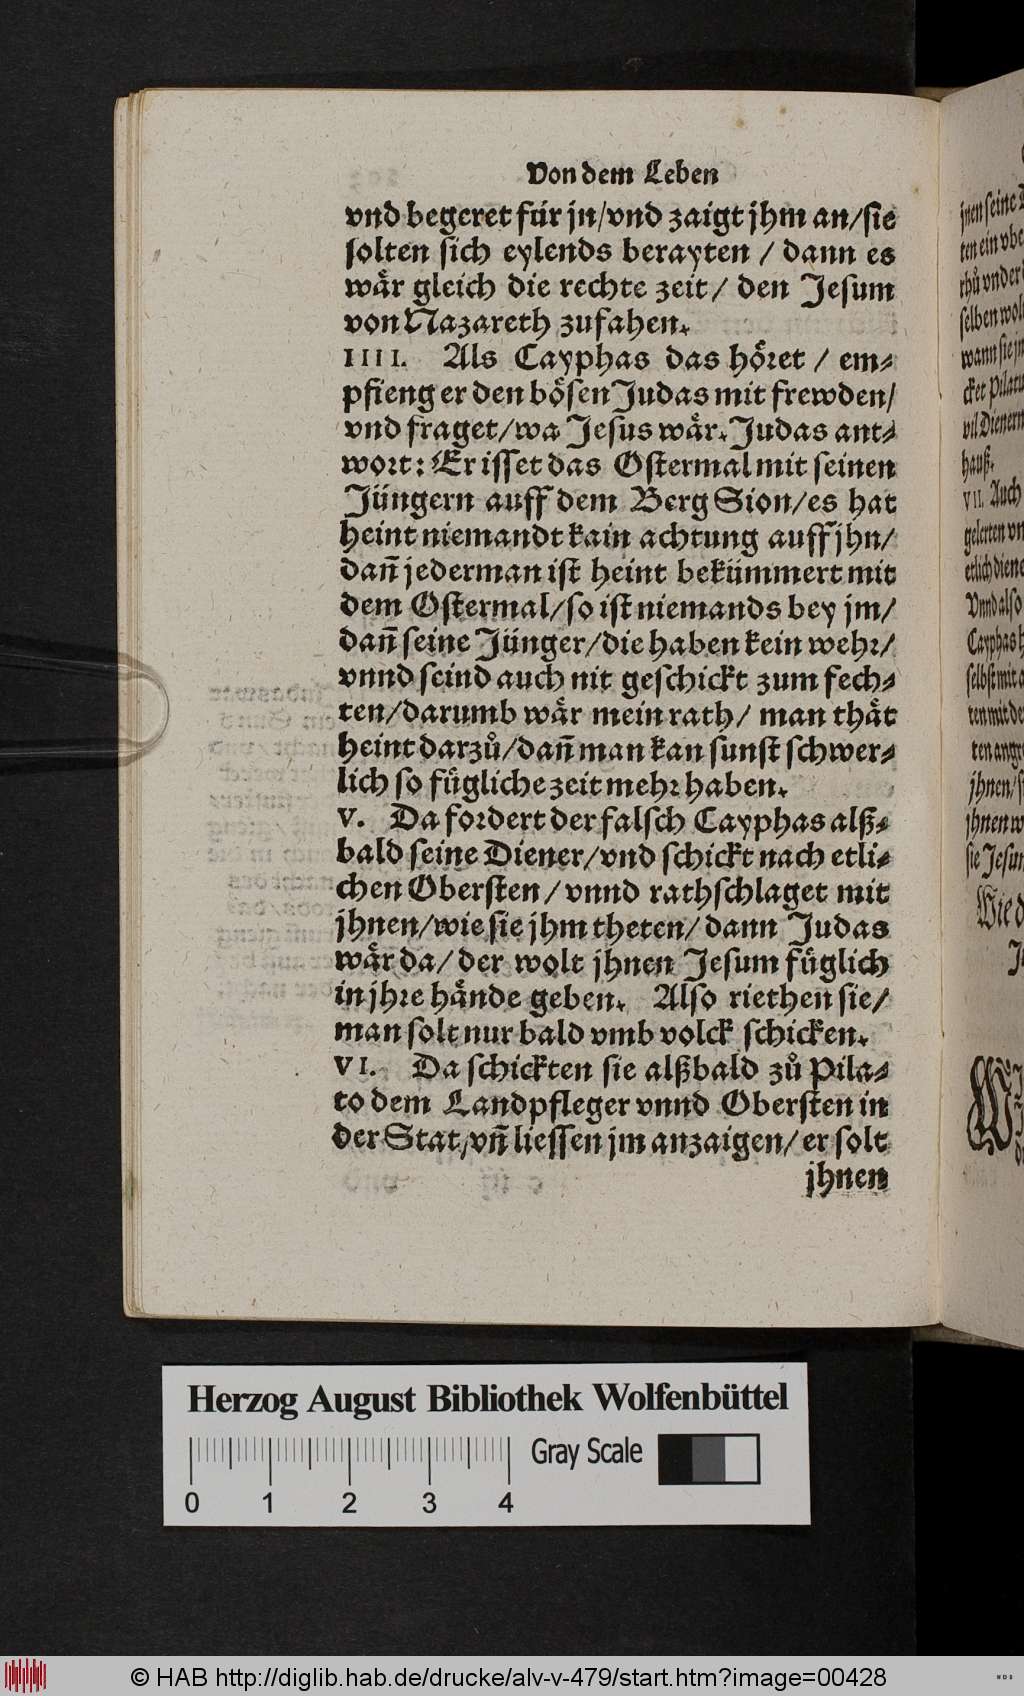 Von dem Leben
vnd begeret für jn/vnd zaigt jhm an/sie
solten sich eylends berayten / dann es
wär gleich die rechte zeit/ den Jesum
von Nazareth zufahen.
IIII. Als Cayphas das höret / em-
pfieng er den bösen Judas mit frewden/
vnd fraget/wa Jesus wär. Judas ant-
wort: Er isset das Ostermal mit seinen
Jüngern auff dem Berg Sion/es hat
heint niemandt kain achtung auff jhn/
dañ jederman ist heint bekümmert mit
dem Ostermal/so ist niemands bey jm/
dañ seine Jünger/die haben kein wehr/
vnnd seind auch nit geschickt zum fech-
ten/darumb wär mein rath/ man thät
heint darzů/dañ man kan sunst schwer-
lich so fügliche zeit mehr haben.
V. Da fordert der falsch Cayphas alß-
bald seine Diener/vnd schickt nach etli-
chen Obersten/vnnd rathschlaget mit
jhnen/wie sie jhm theten/dann Judas
wär da/der wolt jhnen Jesum füglich
in jhre hände geben. Also riethen sie/
man solt nur bald vmb volck schicken.
VI. Da schickten sie alßbald zů Pila-
to dem Landpfleger vnnd Obersten in
der Stat/vñ liessen jm anzaigen/er solt
jhnen
jnen seine
ten ein vbe
rhů vnder
selben wol
wann sie
cket Pilatu
vil Dienern
hauß.
VII. Auch
gelerten vn
etlich diene
Vnnd also
Cayphas
selbst mit
ten mit de
ten angr
jhnen/
jhnen w
sie Jesu
Wie
Herzog August Bibliothek Wolfenbüttel
Gray Scale
0 1 2 3 4
© HAB http://diglib.hab.de/drucke/alv-v-479/start.htm?image=00428